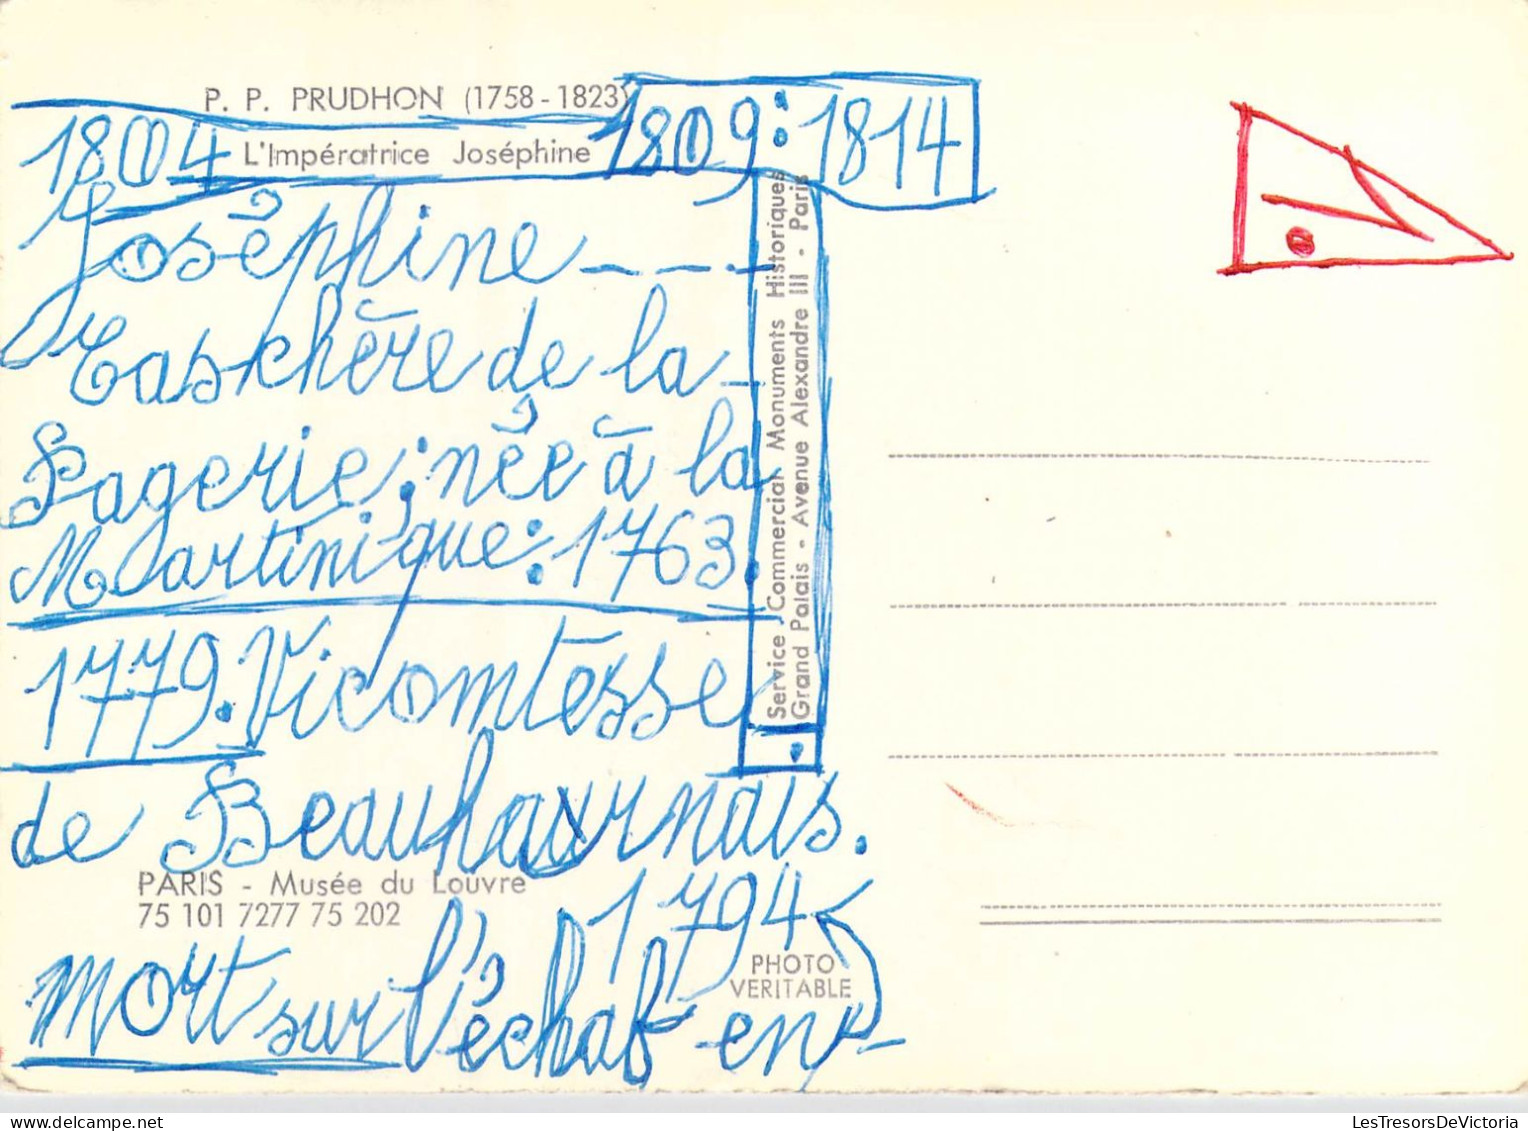 P. P. PRUDHON (1758-1823)
1804 L'Impératrice Joséphine 1809 : 1814
Joséphine ----
Taschère de la -
Pagerie ; née à la
Martinique : 1763.
1779. Vicomtesse
de Beauharnais.
PARIS - Musée du Louvre
75 101 7277 75 202
1794
mort sur l'échaf en
PHOTO
VERITABLE
Service Commercial Monuments Historiques
Grand Palais - Avenue Alexandre III - Paris
LesTresorsDeVictoria